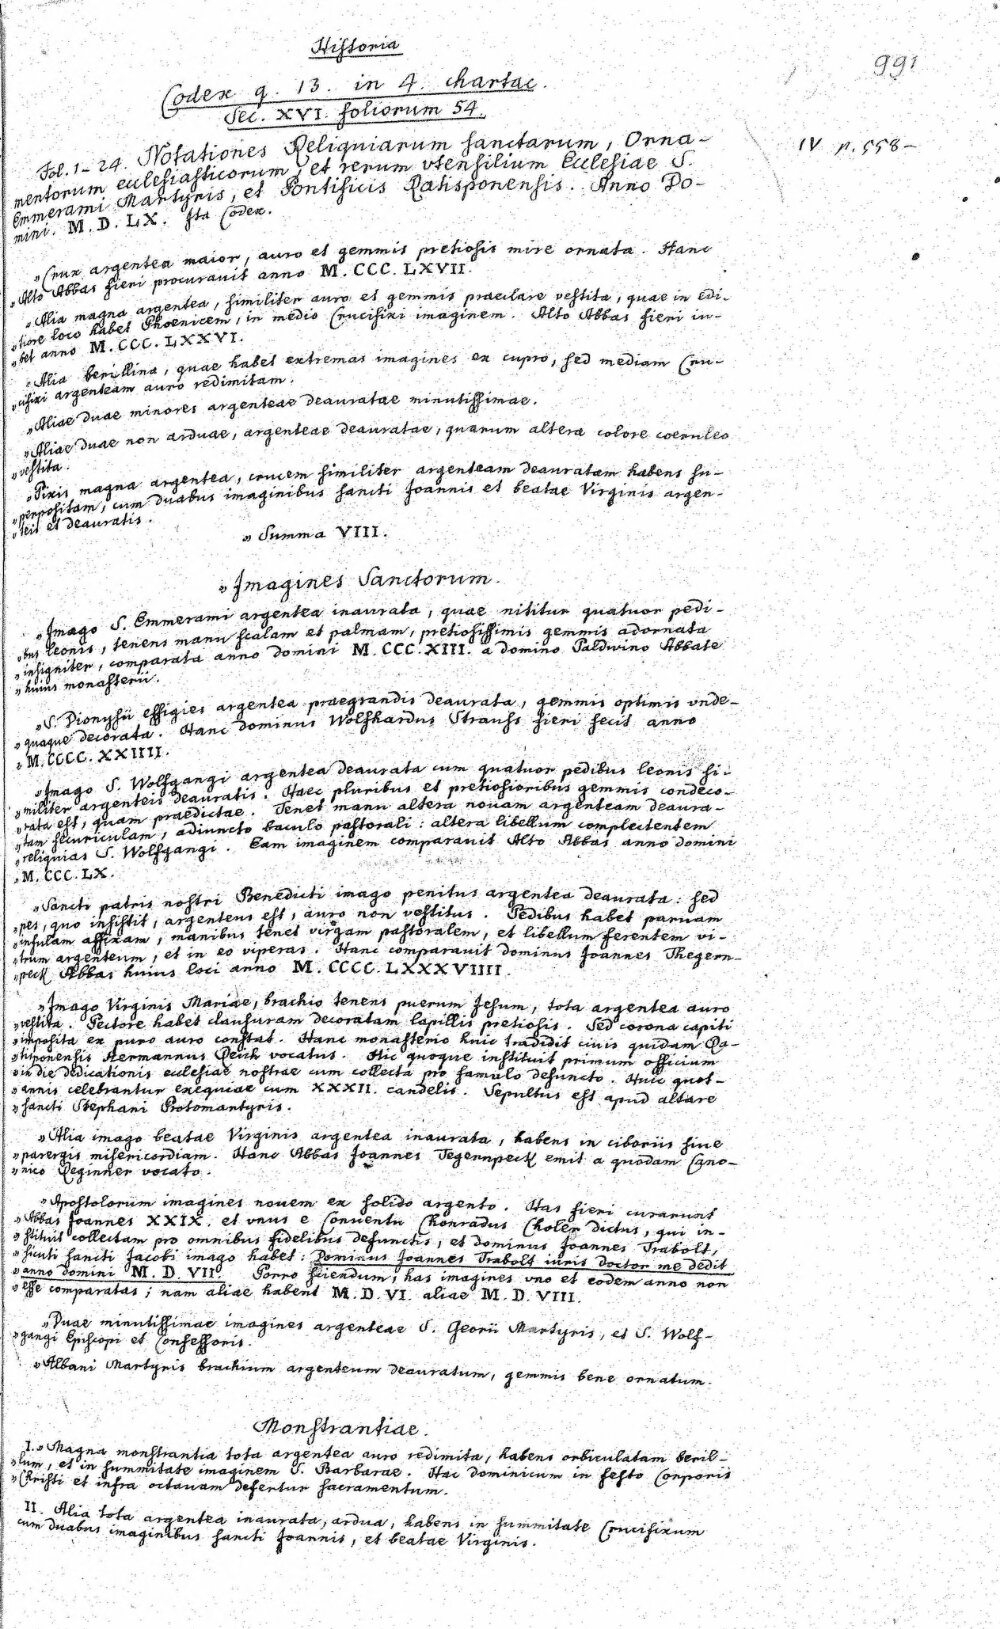 Historia
991
Codex q. 13. in 4. chartac.
Sec. XVI. foliorum 54.
IV p. 558-
Fol. 1-24. Notationes Reliquiarum sanctarum, Orna-
mentorum ecclesiasticorum, et rerum vtensilium Ecclesiae S.
Emmerami Martyris, et Pontificis Ratisponensis. Anno Do-
mini. M. D. LX. Ita Codex.
„Crux argentea maior, auro et gemmis pretiosis mire ornata. Hanc
„Alto Abbas fieri procurauit anno M. CCC. LXVII.
„Alia magna argentea, similiter auro et gemmis praeclare vestita, quae in edi-
„tiore loco habet Phoenicem, in medio Crucifixi imaginem. Alto Abbas fieri iu-
„bet anno M. CCC. LXXVI.
„Alia berillina, quae habet extremas imagines ex cupro, sed mediam Cru-
„cifixi argenteam auro redimitam.
„Aliae duae minores argenteae deauratae minutissimae.
„Aliae duae non arduae, argenteae deauratae, quarum altera colore coeruleo
„vestita.
„Pixis magna argentea, crucem similiter argenteam deauratam habens su-
„perpositam, cum duabus imaginibus sancti Joannis et beatae Virginis argen-
„teis et deauratis.
„Summa VIII.
„Imagines Sanctorum.
„Imago S. Emmerami argentea inaurata, quae nititur quatuor pedi-
„bus leonis, tenens manu scalam et palmam, pretiosissimis gemmis adornata
„insigniter, comparata anno domini M. CCC. XIII. a domino Paldwino Abbate
„huius monasterii.
„S. Dionysii effigies argentea praegrandis deaurata, gemmis optimis vnde-
„quaque decorata. Hanc dominus Wolfhardus Strauss fieri fecit anno
„M. CCCC. XXIIII.
„Imago S. Wolfgangi argentea deaurata cum quatuor pedibus leonis si-
„militer argenteis deauratis. Haec pluribus et pretiosioribus gemmis condeco-
„rata est, quam praedictae. Tenet manu altera nouam argenteam deaura-
„tam securiculam, adiuncto baculo pastorali: altera libellum complectentem
„reliquias S. Wolfgangi. Eam imaginem comparauit Alto Abbas anno domini
„M. CCC. LX.
„Sancti patris nostri Benedicti imago penitus argentea deaurata: sed
„pes, quo insistit, argenteus est, auro non vestitus. Pedibus habet paruam
„insulam affixam, manibus tenet virgam pastoralem, et libellum ferentem vi-
„trum argenteum, et in eo viperas. Hanc comparauit dominus Joannes Thegern-
„peck Abbas huius loci anno M. CCCC. LXXXVIIII.
„Imago Virginis Mariae, brachio tenens puerum Jesum, tota argentea auro
„vestita. Pectore habet clausuram decoratam lapillis pretiosis. Sed corona capiti
„imposita ex puro auro constat. Hanc monasterio huic tradidit ciuis quidam Ra-
„tisponensis Hermannus Reich vocatus. Hic quoque instituit primum officium
„in die dedicationis ecclesiae nostrae cum collecta pro famulo defuncto. Huic quot-
„annis celebrantur exequiae cum XXXII. candelis. Sepultus est apud altare
„sancti Stephani Protomartyris.
„Alia imago beatae Virginis argentea inaurata, habens in ciboriis siue
„parergis misericordiam. Hanc Abbas Joannes Tegernpeck emit a quodam Cano-
„nico Reginner vocato.
„Apostolorum imagines nouem ex solido argento. Has fieri curarunt
„Abbas Joannes XXIX. et vnus e Conuentu Chonradus Choler dictus, qui in-
„stituit collectam pro omnibus fidelibus defunctis, et dominus Joannes Trabolt,
„sicuti sancti Jacobi imago habet: Dominus Joannes Trabolt iuris doctor me dedit
„anno domini M. D. VII. Porro sciendum, has imagines vno et eodem anno non
„esse comparatas; nam aliae habent M. D. VI. aliae M. D. VIII.
„Duae minutissimae imagines argenteae S. Georii Martyris, et S. Wolf-
„gangi Episcopi et Confessoris.
„Albani Martyris brachium argenteum deauratum, gemmis bene ornatum.
Monstrantiae.
I. „Magna monstrantia tota argentea auro redimita, habens orbiculatam beril-
„lum, et in summitate imaginem S. Barbarae. Hac dominicum in festo Corporis
„Christi et infra octauam defertur sacramentum.
II. Alia tota argentea inaurata, ardua, habens in summitate Crucifixum
cum duabus imaginibus sancti Joannis, et beatae Virginis.